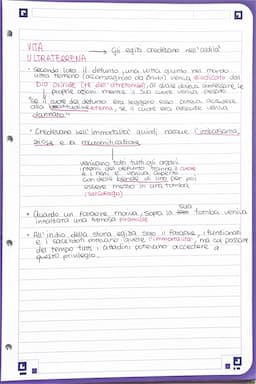 VITA
ULTRATERRENA
Gli egizi credevano nell'aldilà
• Secondo loro il defunto, una volta giunto nel mondo
ultra terreno (accompagnato da Anubi) veniva giudicato dal
Dio Osiride (re dell'oltretomba), al quale doveva confessare le
proprie azioni mentre il suo cuore veniva pesato
"Se il cuore del defunto era leggero esso poteva accedere
alla eterna, se il cuore era pesante veniva
dannato"
• Credevano nell'immortalità quindi nacque l'imbalsama_
zione e la mummificazione
venivano tolti tutti gli organi
interni del defunto tranne il cuore
e i reni e veniva coperto
con delle bende di lino per poi
essere messo in una tomba
(sarcofago)
• Quando un faraone moriva, sopra la sua tomba veniva
innalzata una famosa piramide
• All'inizio della storia egizia solo il faraone, i funzionari
e i sacerdoti potevano avere l'immortalità, ma col passare
del tempo tutti i cittadini potevano accedere a
questo privilegio.